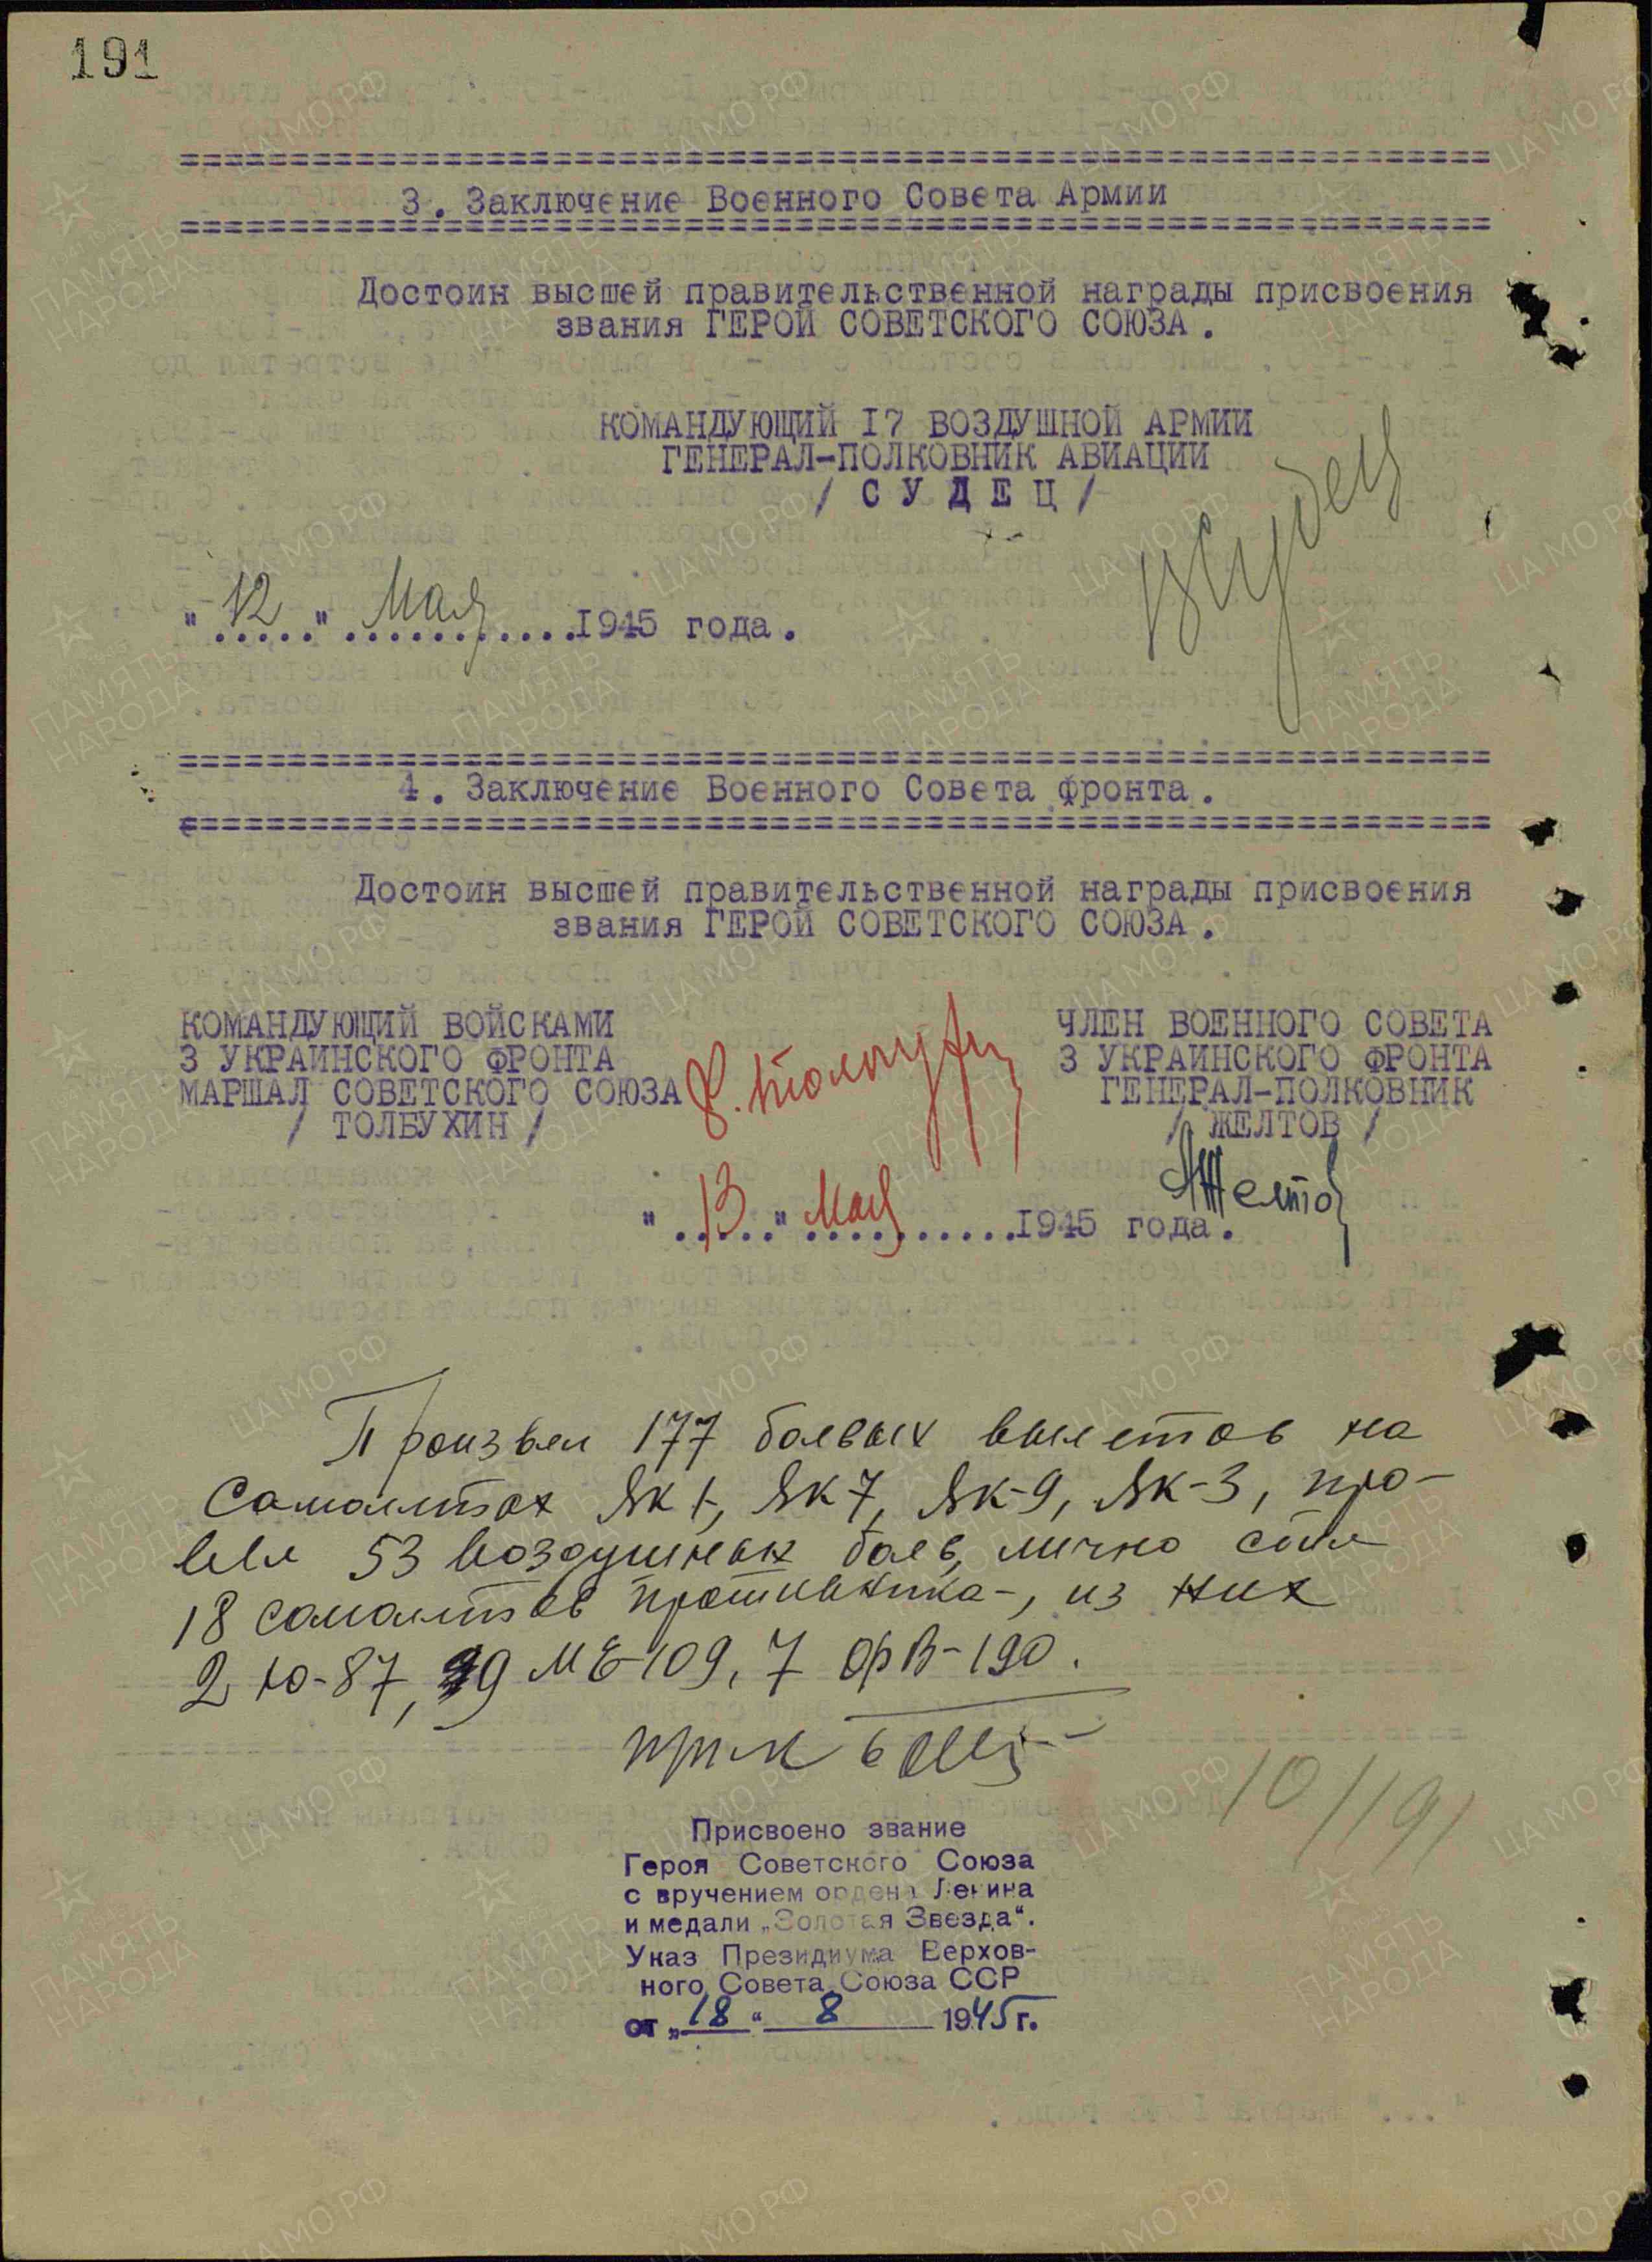 191
3. Заключение Военного Совета Армии
Достоин высшей правительственной награды присвоения
звания ГЕРОЙ СОВЕТСКОГО СОЮЗА.
КОМАНДУЮЩИЙ 17 ВОЗДУШНОЙ АРМИИ
ГЕНЕРАЛ-ПОЛКОВНИК АВИАЦИИ
/ СУДЕЦ /
ВСудец
"12" Мая 1945 года.
4. Заключение Военного Совета фронта.
Достоин высшей правительственной награды присвоения
звания ГЕРОЙ СОВЕТСКОГО СОЮЗА.
КОМАНДУЮЩИЙ ВОЙСКАМИ
3 УКРАИНСКОГО ФРОНТА
МАРШАЛ СОВЕТСКОГО СОЮЗА
/ ТОЛБУХИН /
Ф. Толбухин
ЧЛЕН ВОЕННОГО СОВЕТА
3 УКРАИНСКОГО ФРОНТА
ГЕНЕРАЛ-ПОЛКОВНИК
/ ЖЕЛТОВ /
АЖелтов
"13" Мая 1945 года.
Произвел 177 боевых вылетов на
самолетах Як 1, Як 7, Як-9, Як-3, про-
вел 53 воздушных боев, лично сбил
18 самолетов противника, из них
2 Ю-87, 9 МЕ-109, 7 ФВ-190.
10/191
Присвоено звание
Героя Советского Союза
с вручением ордена Ленина
и медали „Золотая Звезда“.
Указ Президиума Верхов-
ного Совета Союза ССР
от „18“ 8 1945 г.
ПАМЯТЬ НАРОДА
ЦАМО.РФ